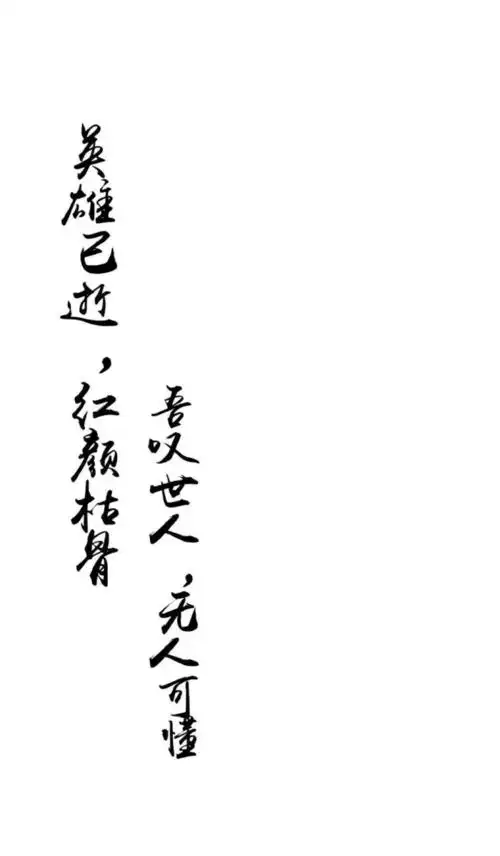 英雄已逝，红颜枯骨
吾叹世人，无人可懂